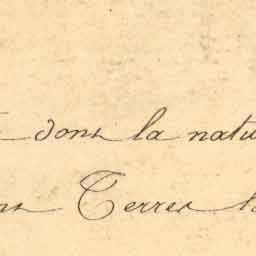 dont la natu
Terres